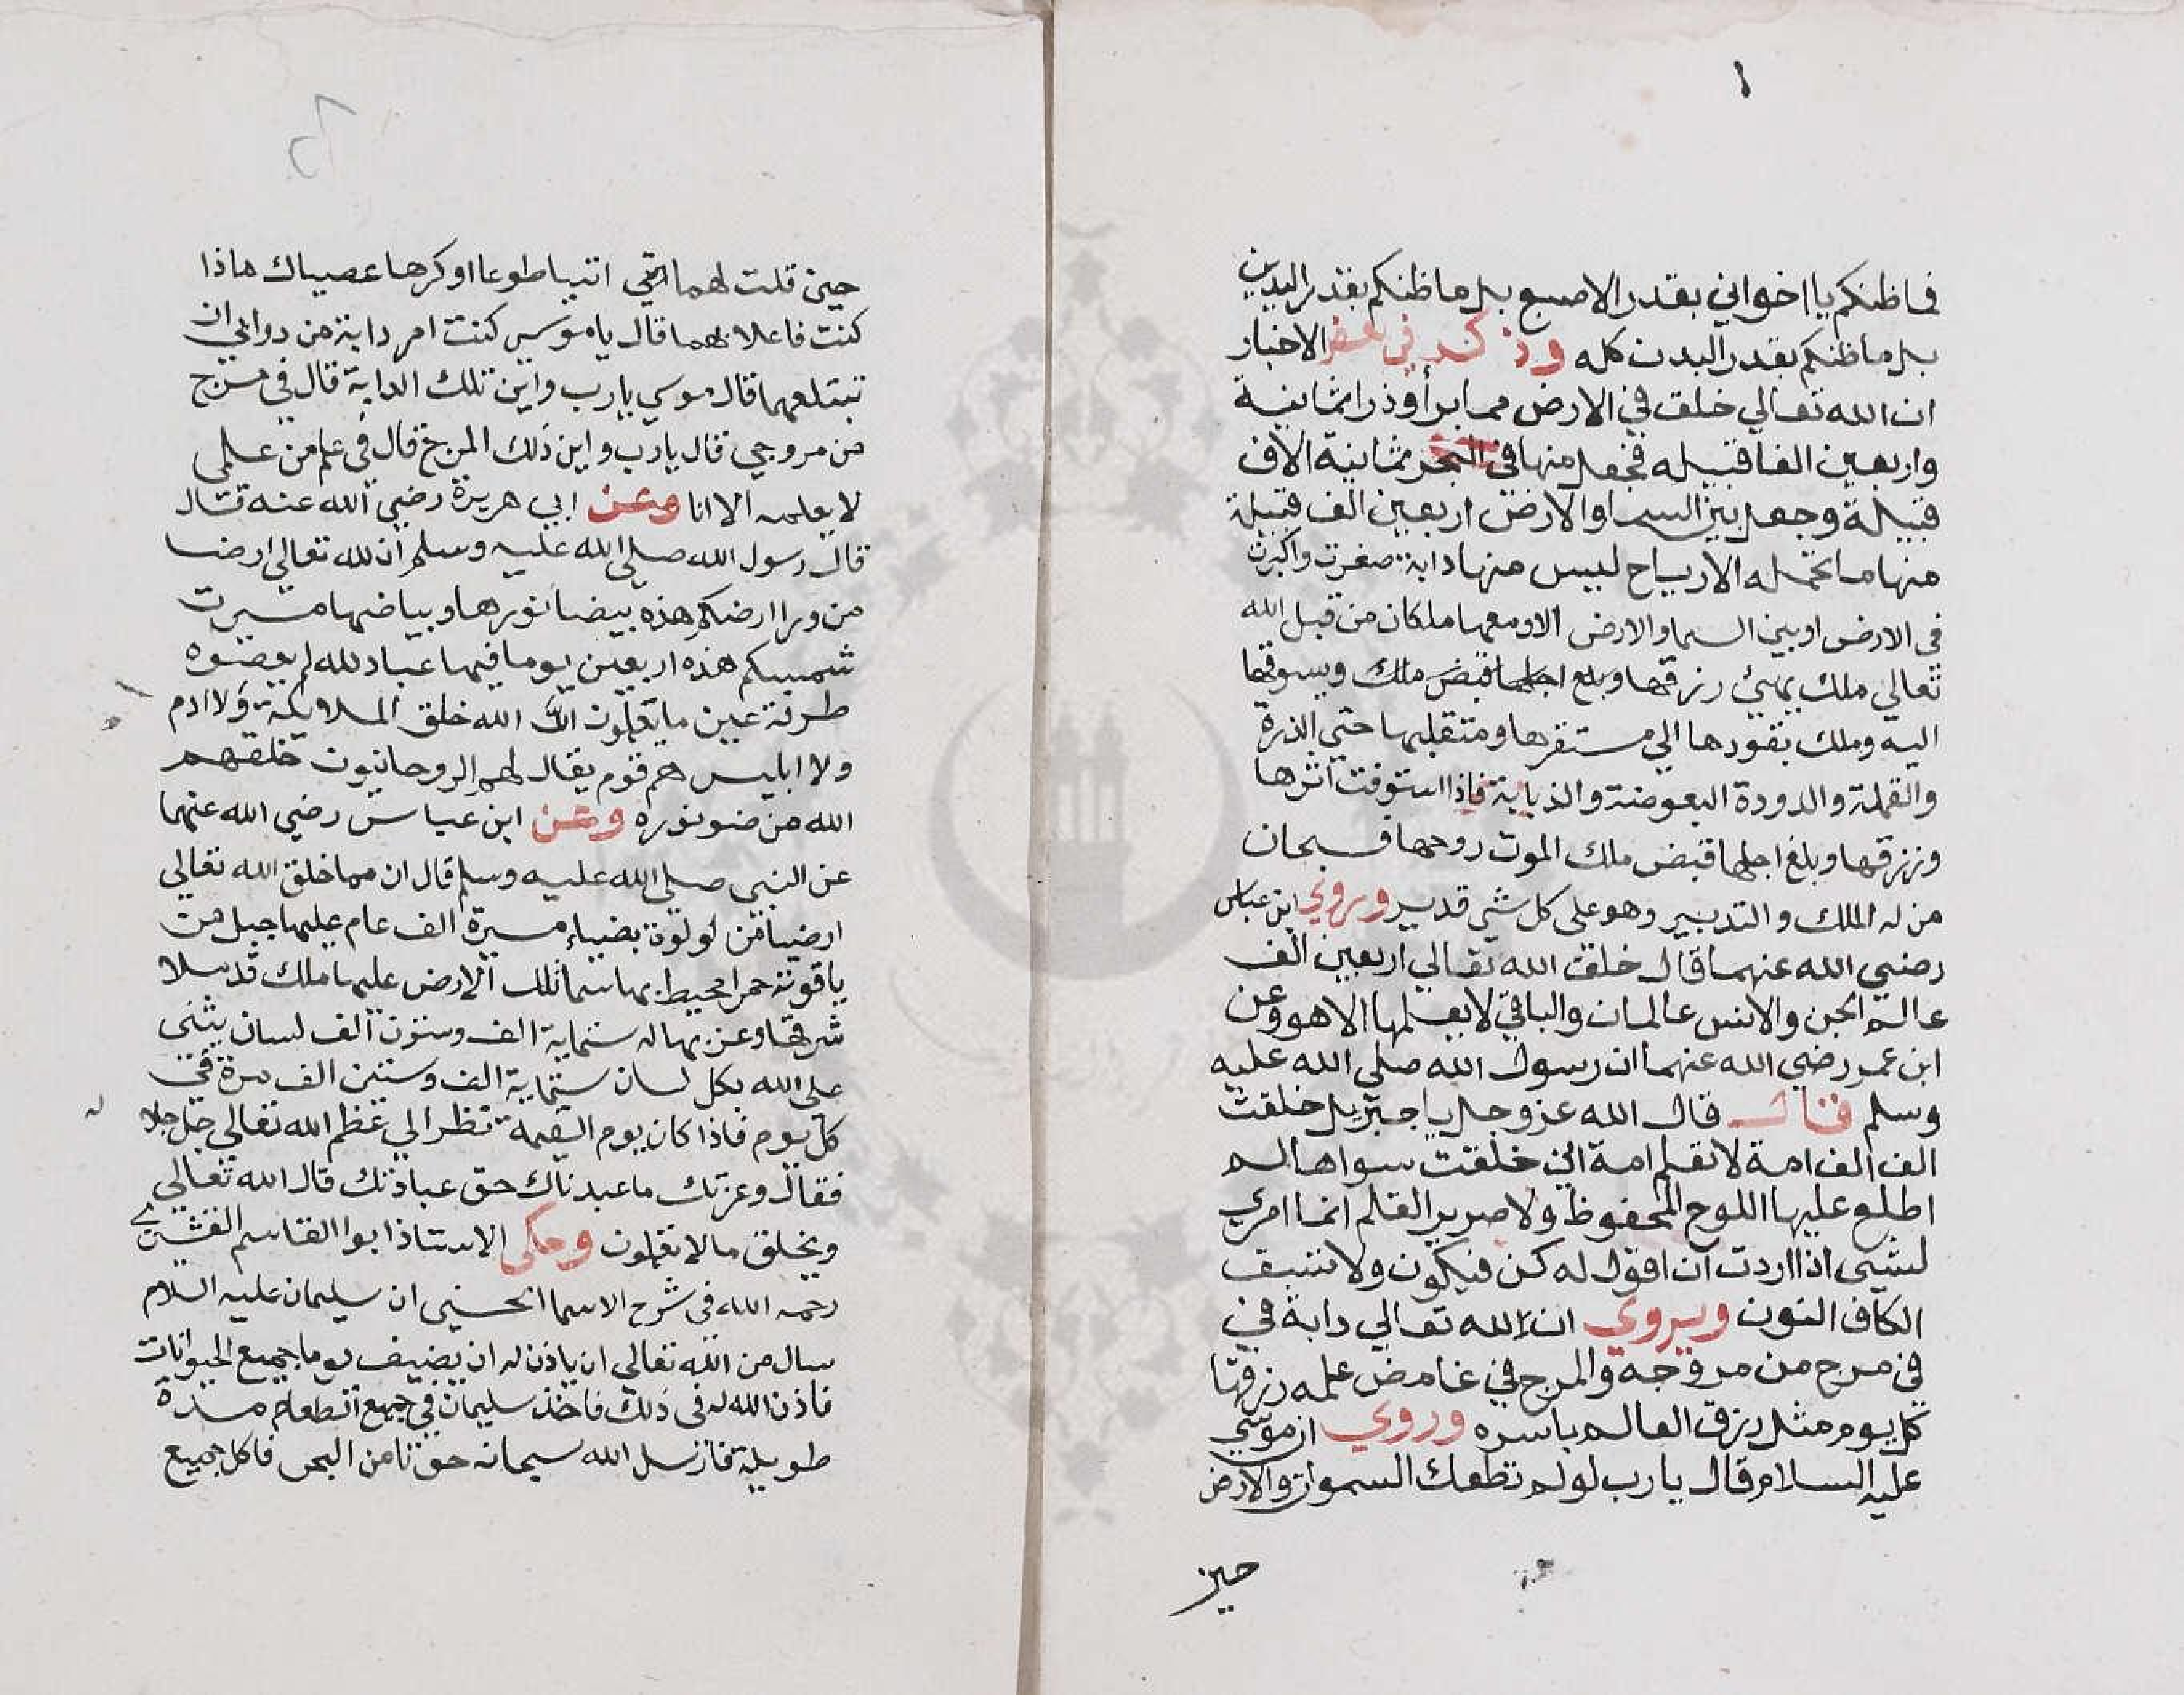 فما ظنكم يا اخواني بقدر الاصبع بل ما ظنكم بقدر اليدين
بل ما ظنكم بقدر البدن كله وذكر في بعض الاخبار
ان الله تعالي خلق في الارض مما برأ وذرا ثمانية
واربعين الفا قبيله فجعل منها في البحر ثمانية الاف
قبيلة وجعل بين السما والارض اربعين الف قبيلة
منها ما تحمله الارياح ليس منها دابة صغرت واكبرت
في الارض او بين السما والارض الا ومعها ملكان من قبل الله
تعالي ملك يهيئ رزقها وبلغ اجلها قبض ملك ويسوقها
اليه وملك يقودها الي مستقرها ومتقلبها حتي الذرة
والقملة والدودة البعوضة والذبابة فاذا استوفت اثرها
ورزقها وبلغ اجلها قبض ملك الموت روحها فسبحان
من له الملك والتدبير وهو على كل شي قدير وروي ابن عباس
رضي الله عنهما قال خلق الله تعالي اربعين الف
عالم الجن والانس عالمان والباقي لا يعلمها الا هو وعن
ابن عمر رضي الله عنهما ان رسول الله صلي الله عليه
وسلم قال قال الله عز وجل يا جبريل خلقت
الف الف امة لا تعلم امة اني خلقت سواها لم
اطلع عليها اللوح المحفوظ ولا صرير القلم انما امري
لشي اذا اردت ان اقول له كن فيكون ولا تسبق
الكاف النون ويروي ان لله تعالي دابة في
في مرج من مروجه والمرج في غامض علمه رزقها
كل يوم مثل رزق العالم باسره وروي ان موسي
عليه السلام قال يا رب لو لم تطعك السموات والارض
حين
حين قلت لهما اتيا طوعا او كرها عصياك ماذا
كنت فاعلا بهما قال يا موسي كنت امر دابة من دوابي ان
تبتلعهما قال موسي يا رب واين تلك الدابة قال في مرج
من مروجي قال يا رب واين ذلك المرج قال في علم من علمي
لا يعلمه الا انا وعن ابي هريرة رضي الله عنه قال
قال رسول الله صلي الله عليه وسلم ان لله تعالي ارضا
من ورا ارضكم هذه بيضا نورها وبياضها مسيرت
شمسكم هذه اربعين يوما فيها عباد لله لم يعصوه
طرفة عين ما يعلمون ان الله خلق الملايكة ولا ادم
ولا ابليس هم قوم يقال لهم الروحانيون خلقهم
الله من ضو نوره وعن ابن عباس رضي الله عنهما
عن النبي صلي الله عليه وسلم قال ان مما خلق الله تعالي
ارضا من لولوة بضياء مسيرة الف عام عليها جبل من
ياقوتة حمرا محيط بها سما تلك الارض عليها ملك قد ملا
شرقها وغربها له ستماية الف وستون الف لسان يثني
على الله بكل لسان ستماية الف وستين الف مرة في
كل يوم فاذا كان يوم القيمة نظر الي عظم الله تعالي جل جلا له
فقال وعزتك ما عبدناك حق عبادتك قال الله تعالي
ويخلق ما لا تعلمون وحكى الاستاذ ابوا القاسم القشيري
رحمه الله في شرح الاسما الحسني ان سليمان عليه السلام
سال من الله تعالي ان ياذن له ان يضيف يوما جميع الحيوانات
فاذن الله له في ذلك فاخذ سليمان في جمع الطعام مدة
طويلة فارسل الله سبحانه حوتا من البحر فاكل جميع